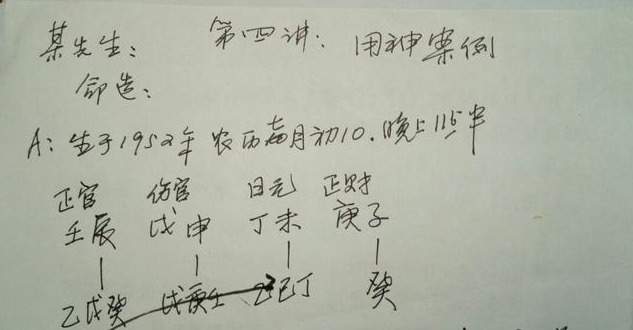 某先生： 第四讲：用神案例
命造：
A：生于1952年 农历七月初10．晚上11点半
正官 伤官 日元 正财
壬辰 戊申 丁未 庚子
乙戊癸 戊庚壬 乙己丁 癸